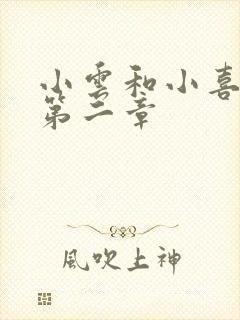 小雲和小喜
第二章
風吹上神